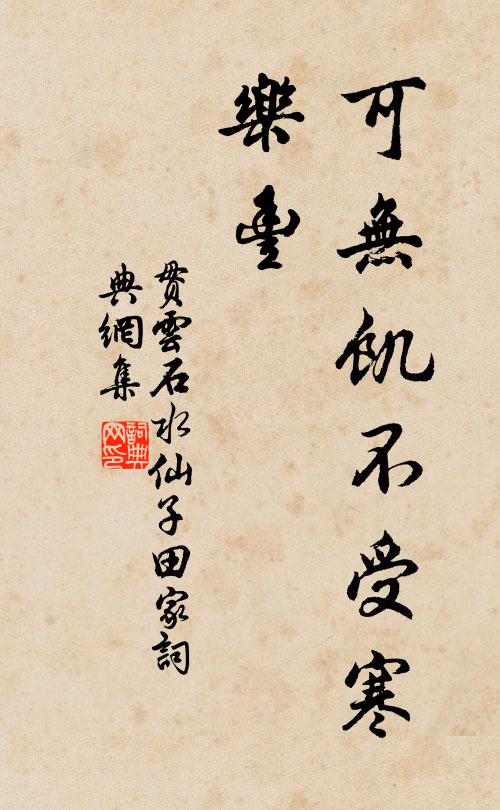 可無飢不受寒
樂豐
貫雲石水仙子田家詞
典網集
詞典
网印